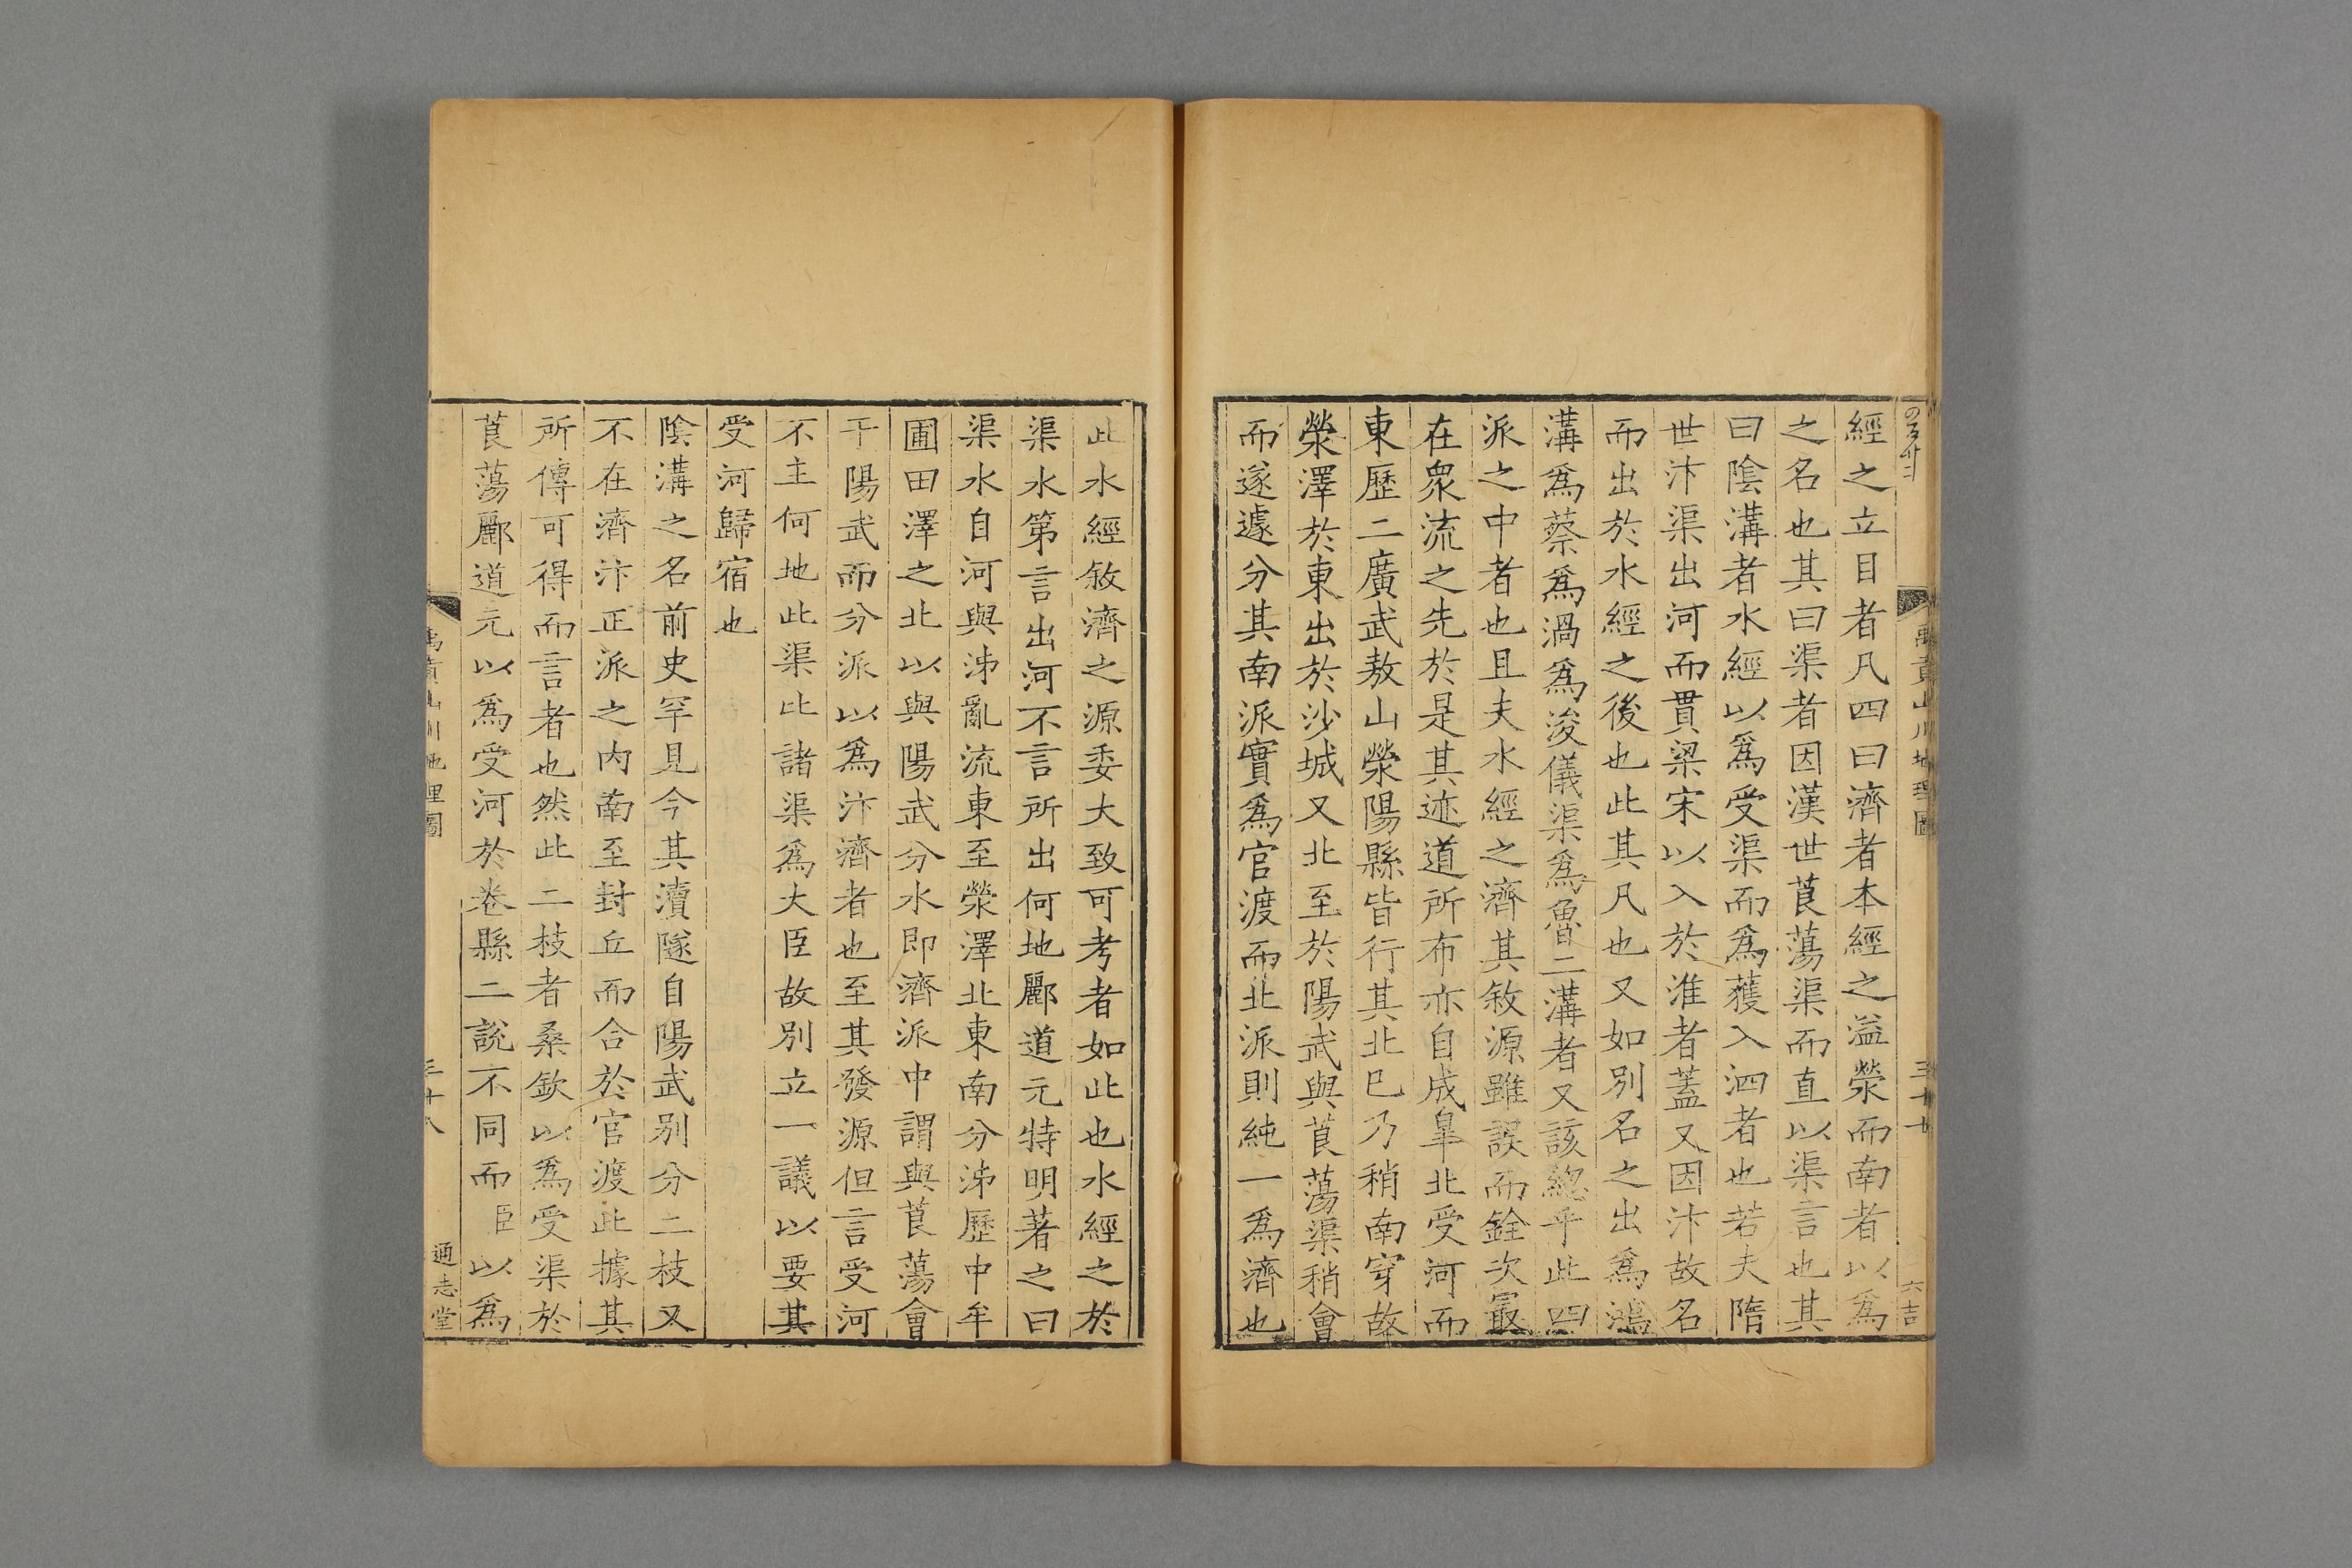 禹貢山川地理圖
三十七
六吉
經之立目者凡四曰濟者本經之溢滎而南者以爲
之名也其曰渠者因漢世莨蕩渠而直以渠言也其
曰陰溝者水經以爲受渠而爲獲入泗者也若夫隋
世汴渠出河而貫梁宋以入於淮者蓋又因汴故名
而出於水經之後也此其凡也又如別名之出爲鴻
溝爲蔡爲渦爲浚儀渠爲魯二溝者又該緫乎此四
派之中者也且夫水經之濟其敘源雖誤而銓次最
在衆流之先於是其迹道所布亦自成皐北受河而
東歷二廣武敖山滎陽縣皆行其北巳乃稍南穿故
滎澤於東出於沙城又北至於陽武與莨蕩渠稍會
而遂遽分其南派實爲官渡而北派則純一爲濟也
此水經敘濟之源委大致可考者如此也水經之於
渠水第言出河不言所出何地酈道元特明著之曰
渠水自河與泲亂流東至滎澤北東南分泲歷中牟
圃田澤之北以與陽武分水即濟派中謂與莨蕩會
于陽武而分派以爲汴濟者也至其發源但言受河
不主何地此渠比諸渠爲大臣故別立一議以要其
受河歸宿也
陰溝之名前史罕見今其瀆隧自陽武別分二枝又
不在濟汴正派之內南至封丘而合於官渡此據其
所傳可得而言者也然此二枝者桑欽以爲受渠於
莨蕩酈道元以爲受河於卷縣二說不同而臣以爲
禹貢山川地理圖
三十八
通志堂